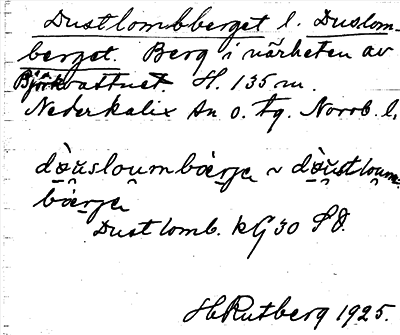 Dustlombberget l. Duslom-
berget. Berg i närheten av
Björkvattnet. H. 135 m.
Nederkalix sn o. tg. Norrb. l.
dò̤ŭsloumbæ̀rjɐ ~ dò̤ŭstloum-
bæ̀rjɐ
Dustlomb. kG 30 SO.
HRutberg 1925.